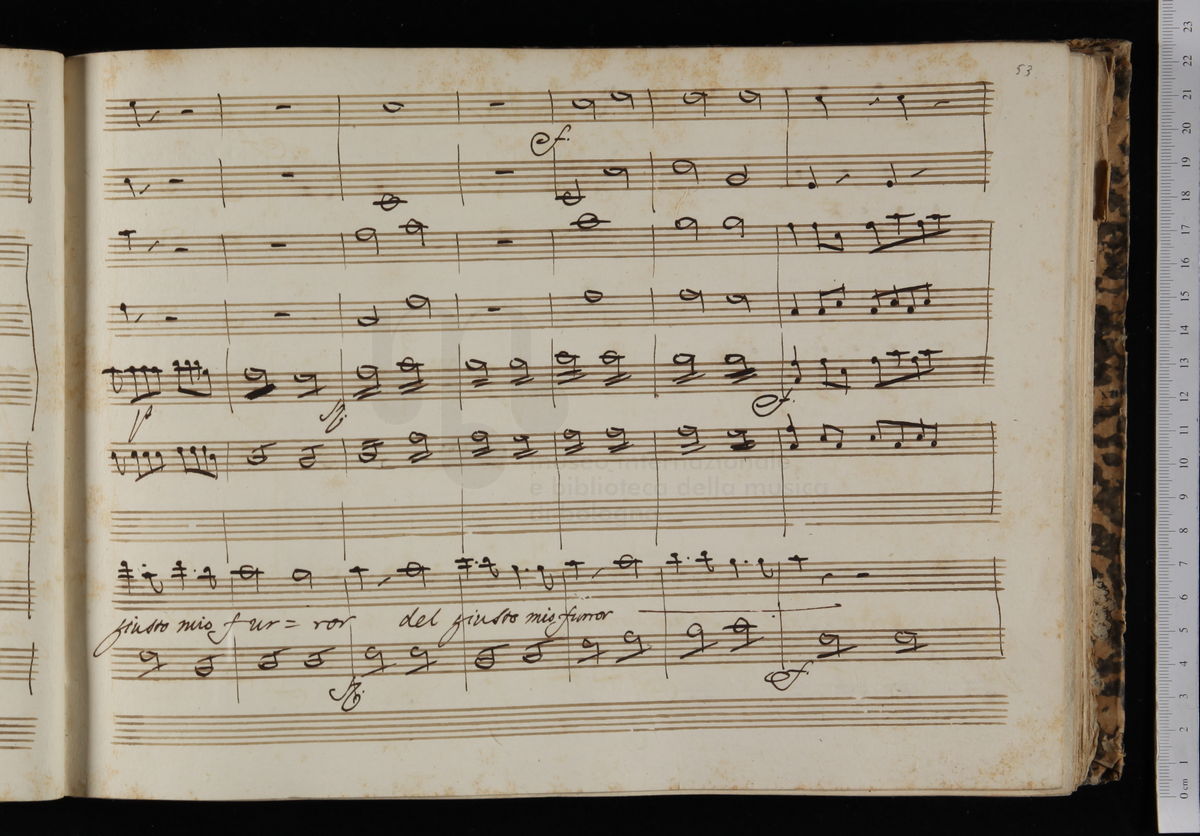 53
f.
p
f.
giusto mio fur=ror del giusto mio furror
f.
museo internazionale
e biblioteca della musica
di bologna
23
22
21
20
19
18
17
16
15
14
13
12
11
10
9
8
7
6
5
4
3
2
1
0 cm